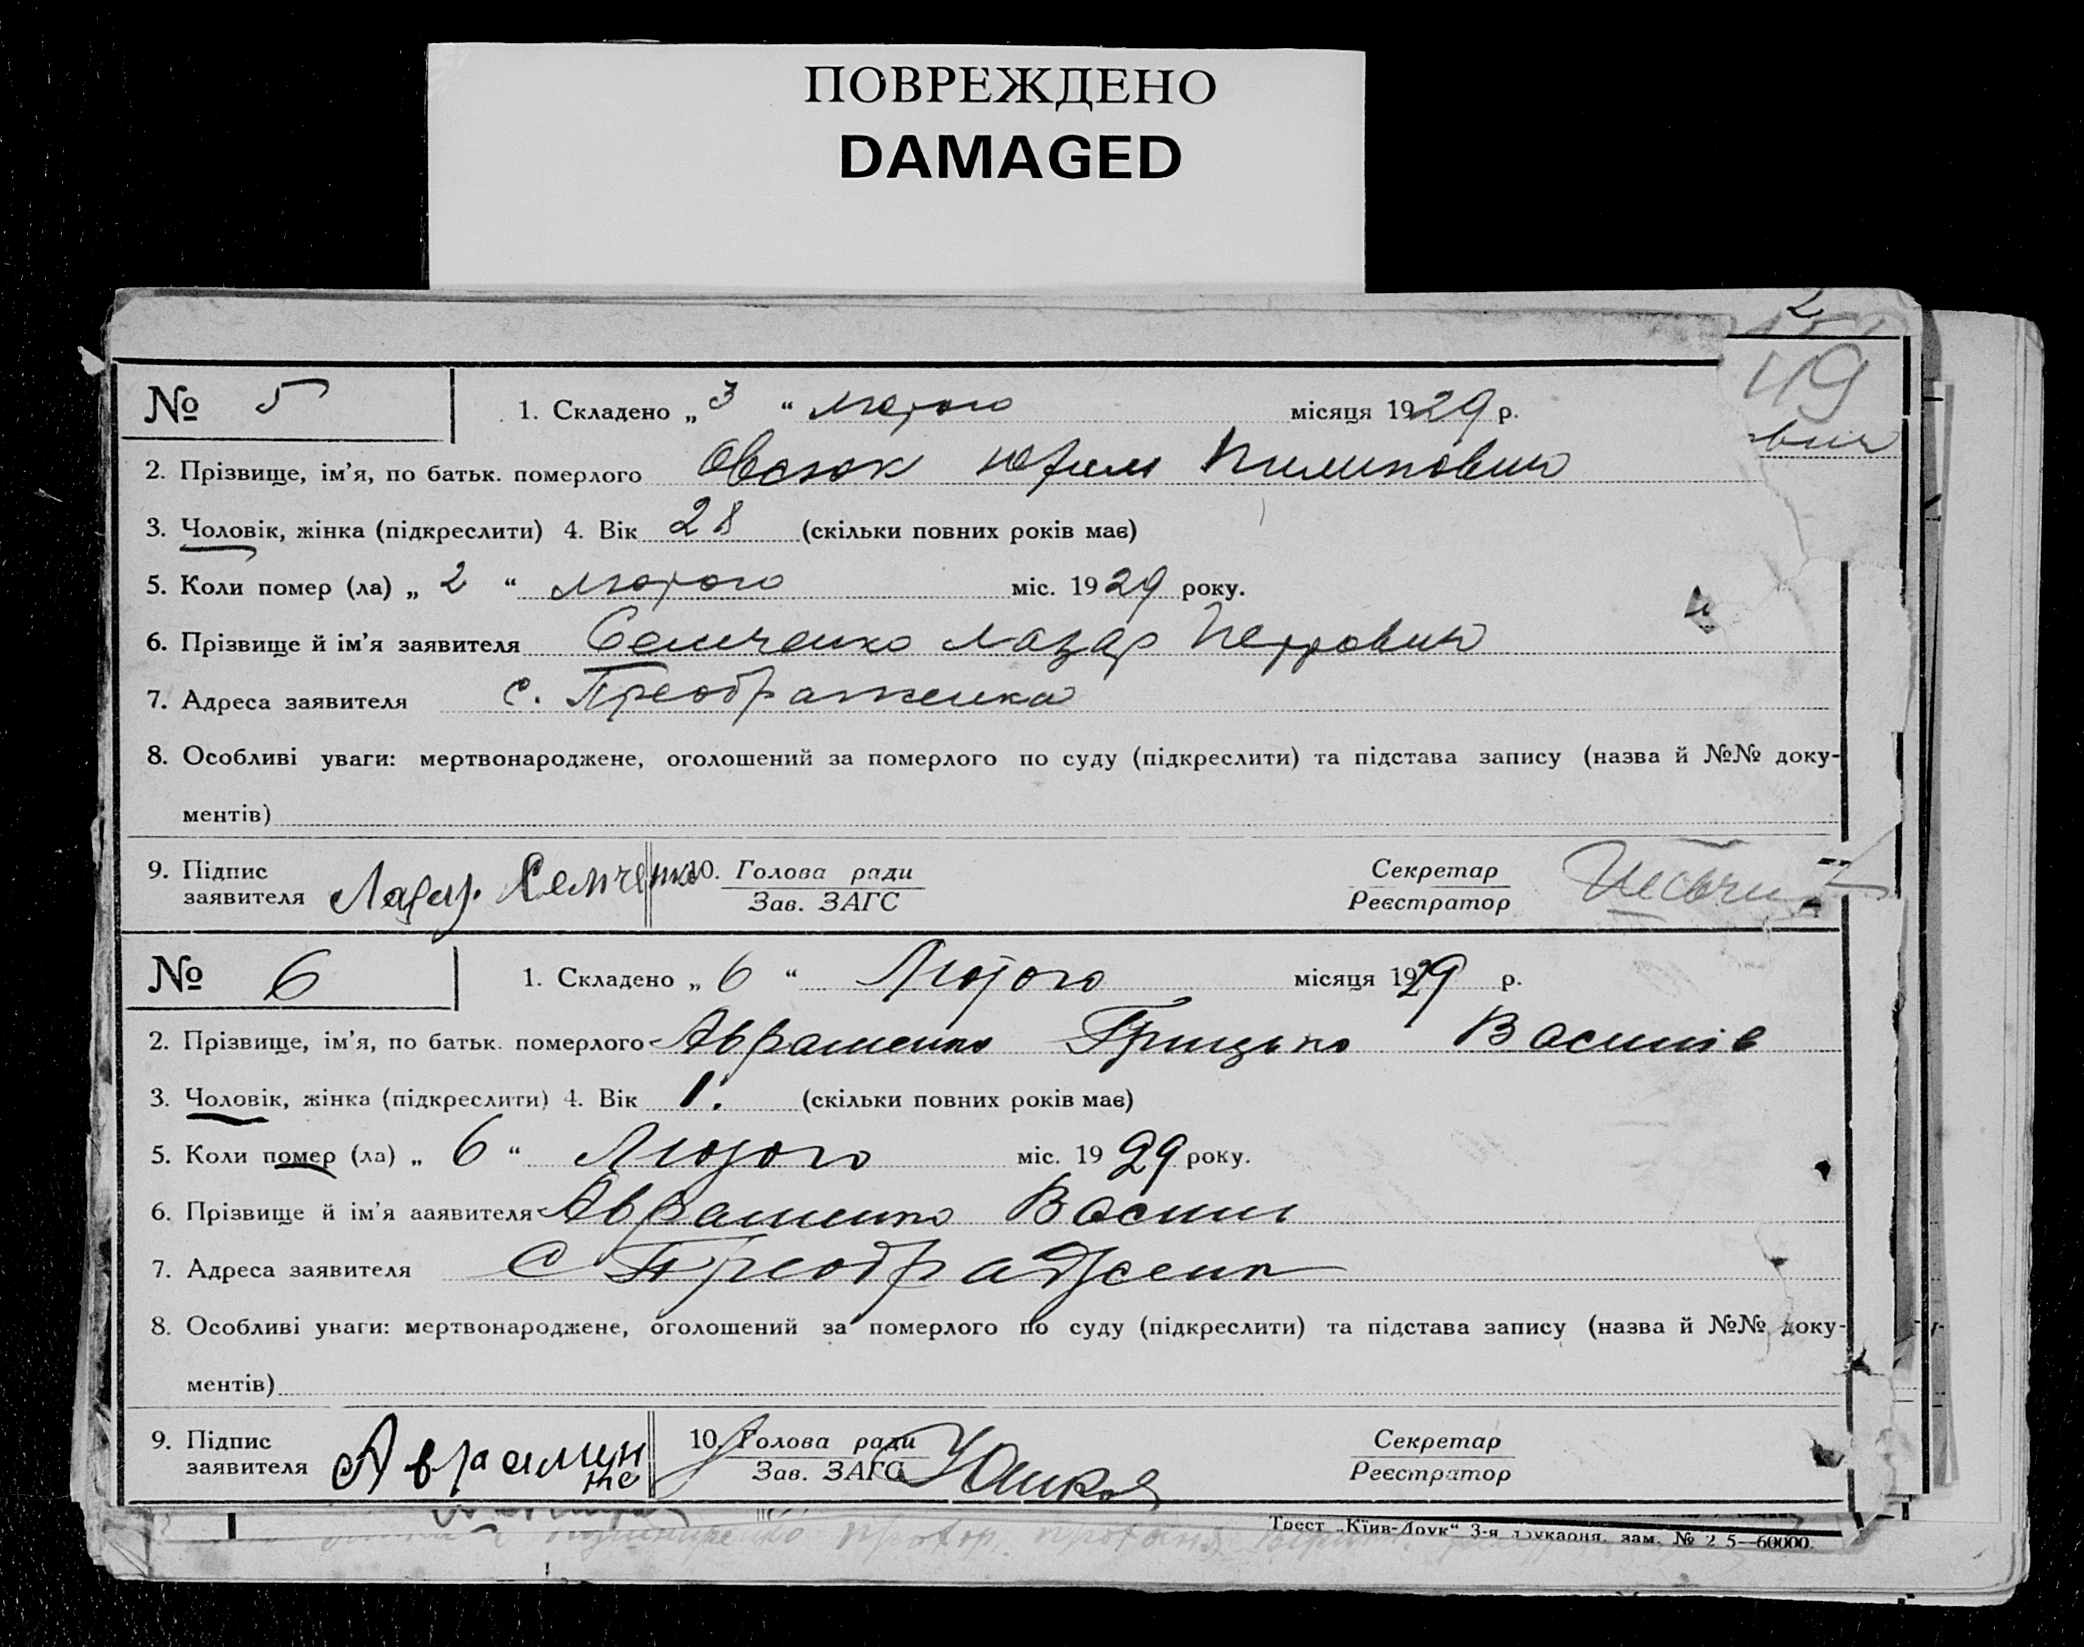 ПОВРЕЖДЕНО
DAMAGED
2
49
№ 5 1. Складено „ 3 “ лютого місяця 1929 р.
2. Прізвище, ім’я, по батьк. померлого Овсюк Юхим Пилипович
3. Чоловік, жінка (підкреслити) 4. Вік 28 (скільки повних років має)
5. Коли помер (ла) „ 2 “ лютого міс. 1929 року.
6. Прізвище й ім’я заявителя Семченко Лазар Петрович
7. Адреса заявителя с. Преображенка
8. Особливі уваги: мертвонароджене, оголошений за померлого по суду (підкреслити) та підстава запису (назва й №№ доку-
ментів)
9. Підпис заявителя Лазар Семченко 10. Голова ради Зав. ЗАГС Секретар Реєстратор
№ 6 1. Складено „ 6 “ Лютого місяця 1929 р.
2. Прізвище, ім’я, по батьк. померлого Авраменко Грицько Василів
3. Чоловік, жінка (підкреслити) 4. Вік 1. (скільки повних років має)
5. Коли помер (ла) „ 6 “ Лютого міс. 1929 року.
6. Прізвище й ім’я ааявителя Авраменко Васил
7. Адреса заявителя с Преображенк
8. Особливі уваги: мертвонароджене, оголошений за померлого по суду (підкреслити) та підстава запису (назва й №№ доку-
ментів)
9. Підпис заявителя Авраменко 10. Голова ради Зав. ЗАГС Секретар Реєстратор
Трест „Київ-Друк“ 3-я друкарня, зам. № 2 5—60000.